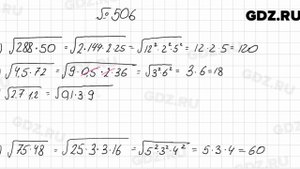 № 506
GDZ.RU
) √288·50 = √2·144·2·25 = √12²·2²·5² = 12·2·5 = 120
) √4,5·72 = √9·0,5·2·36 = √3²6² = 3·6 = 18
√2,7·1,2 = √0,1·3·9
) √75·48 = √25·3·3·16 = √5²3²·4² = 5·3·4 = 60
GDZ.RU